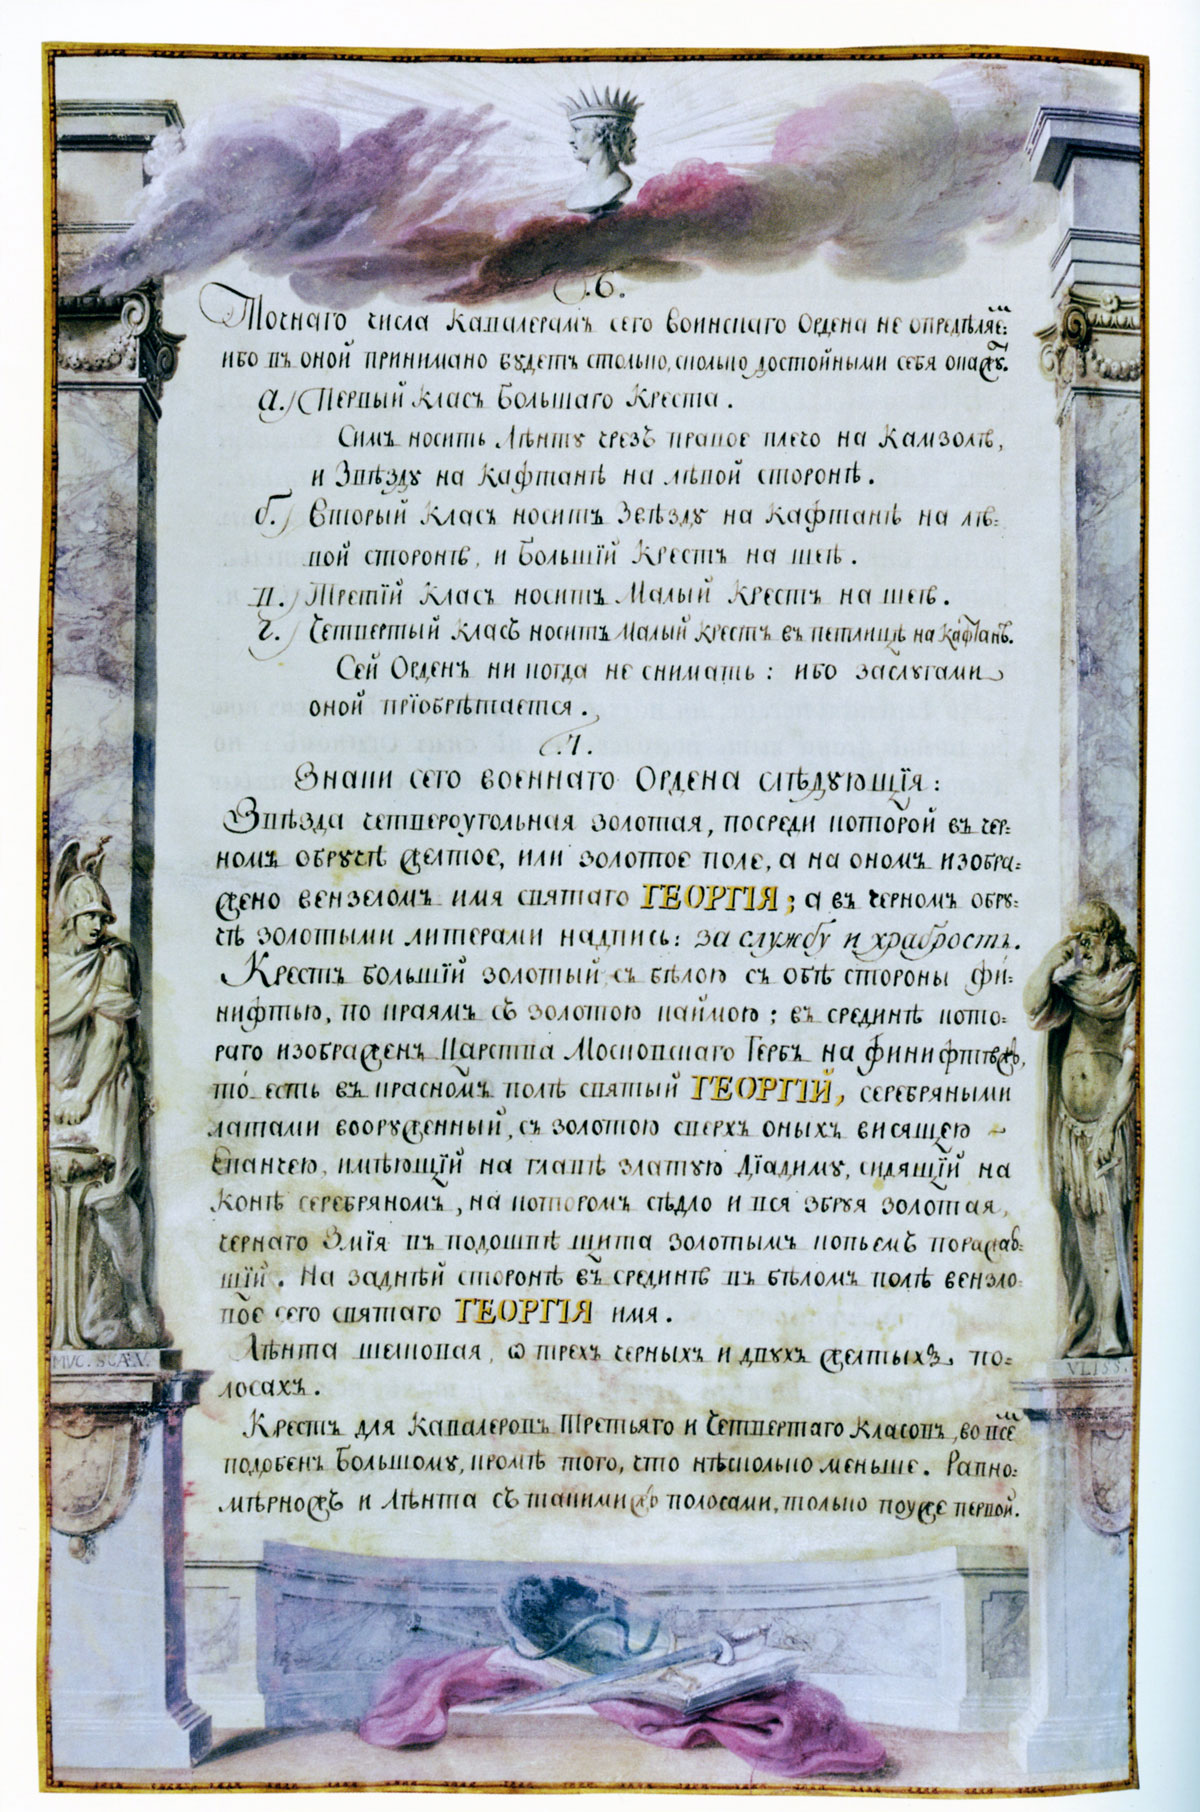 §.6.
Точнаго числа Кавалерамъ сего Воинскаго Ордена не опредѣляемъ:
ибо въ оной принимано будетъ столько, сколько достойными себя окажутъ.
а.) Первый Класъ Большаго Креста.
Симъ носить Лѣнту чрезъ правое плечо на Камзолѣ,
и Звѣзду на Кафтанѣ на лѣвой сторонѣ.
б.) Вторый Класъ носитъ Звѣзду на Кафтанѣ на лѣ-
вой сторонѣ, и Большій Крестъ на шеѣ.
в.) Третій Класъ носитъ Малый Крестъ на шеѣ.
г.) Четвертый Класъ носитъ Малый Крестъ въ петлицѣ на Кафтанѣ.
Сей Орденъ никогда не снимать: ибо заслугами
оной пріобрѣтается.
§.7.
Знаки сего военнаго Ордена слѣдующія:
Звѣзда четвероугольная золотая, посреди которой въ чер-
номъ обручѣ желтое, или золотое поле, а на ономъ изобра-
жено вензеломъ имя святаго ГЕОРГІЯ; а въ черномъ обру-
чѣ золотыми литерами надпись: за службу и храбрость.
Крестъ большій золотый съ бѣлою съ обѣ стороны фи-
нифтью, по краямъ съ золотою каймою; въ срединѣ кото-
раго изображенъ Царства Московскаго Гербъ на финифтѣжъ,
то есть въ красномъ полѣ святый ГЕОРГІЙ, серебряными
латами вооруженный, съ золотою сверхъ оныхъ висящею
Епанчею, имѣющій на главѣ златую Діадиму, сидящій на
Конѣ серебряномъ, на которомъ сѣдло и вся збруя золотая,
чернаго Змія въ подошвѣ щита золотымъ копьемъ поражав-
шій. На задней сторонѣ въ срединѣ въ бѣломъ полѣ вензло-
вое сего святаго ГЕОРГІЯ имя.
Лѣнта шелковая, ѡ трехъ черныхъ и двухъ желтыхъ по-
лосахъ.
Крестъ для Кавалеровъ Третьяго и Четвертаго Класовъ, во всемъ
подобенъ Большому, кромѣ того, что нѣсколько меньше. Равно-
мѣрножъ и Лѣнта съ такимижъ полосами, только поуже первой.
MVC. SCÆV.
VLISS.